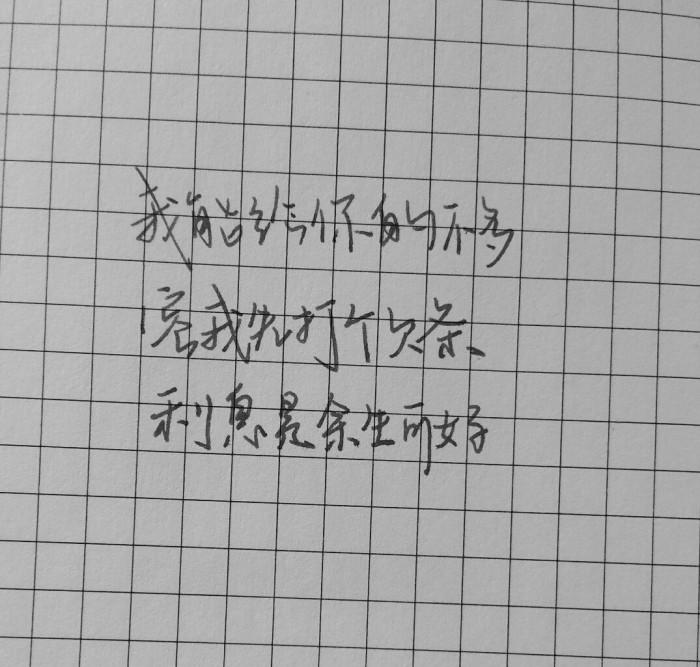 我能给你的不多
容我先打个欠条
利息是余生可好